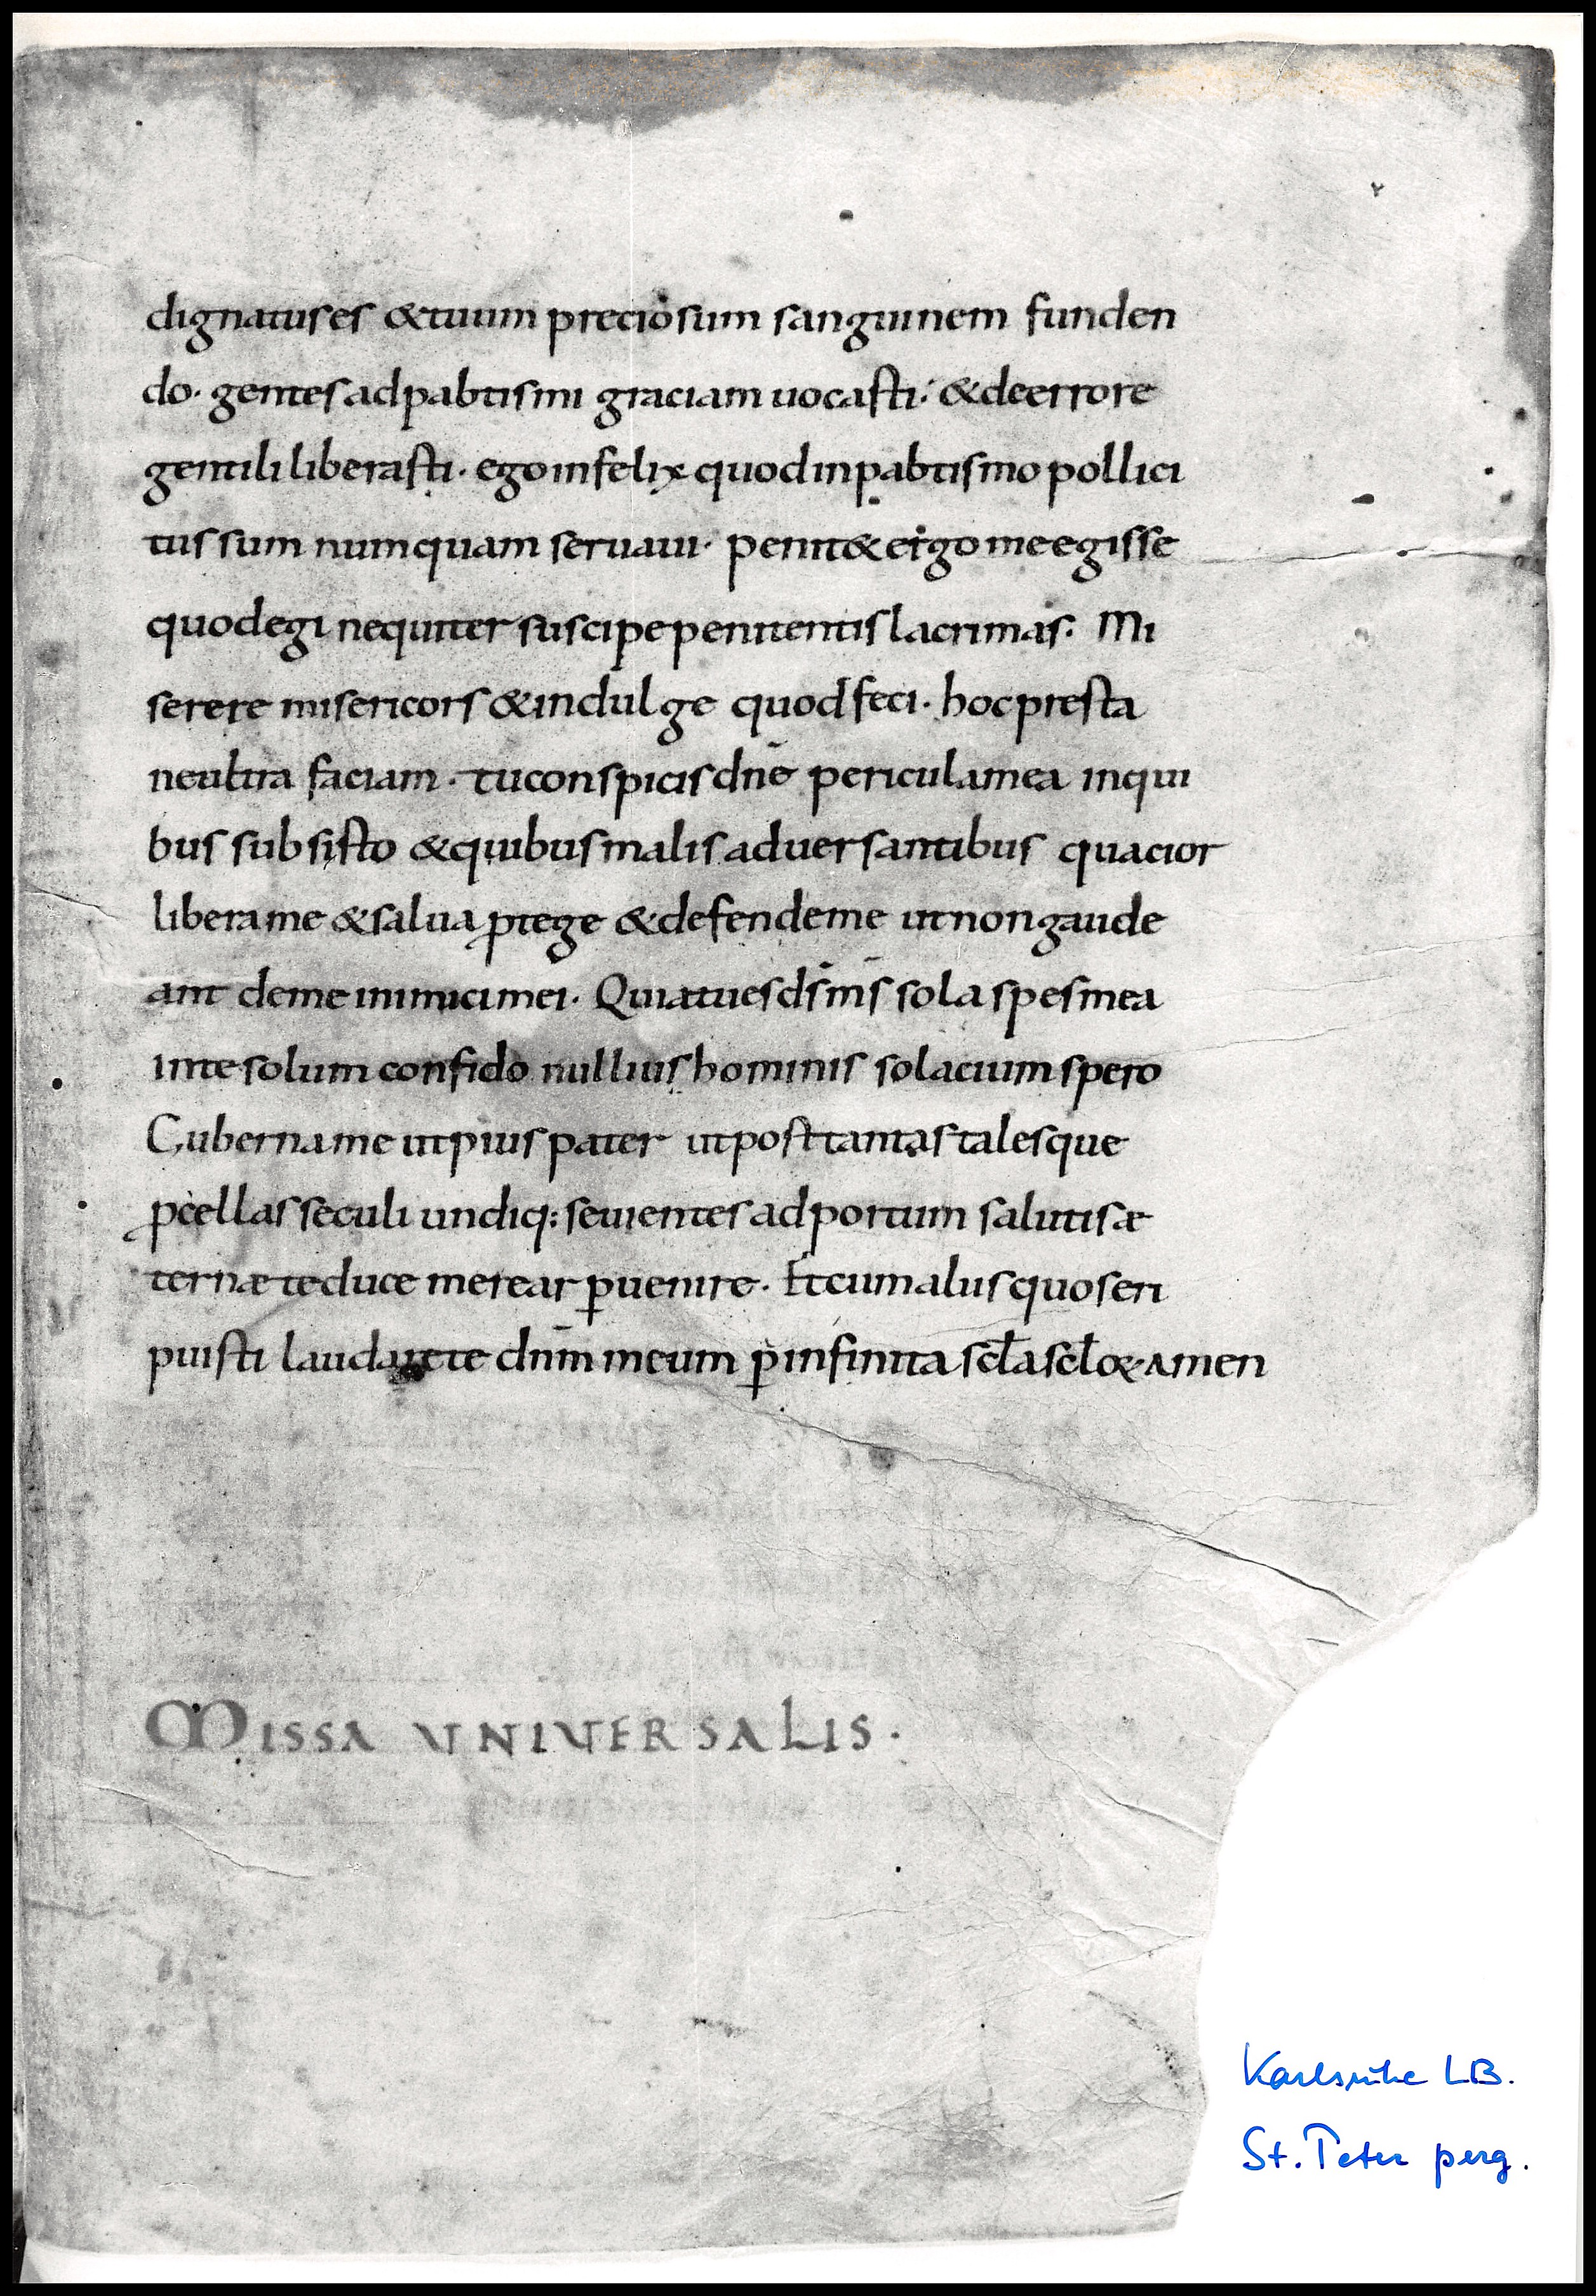 dignatus es & tuum preciosum sanguinem funden
do· gentes ad pabtismi graciam uocasti· & de errore
gentili liberasti· ego infelix quod in pabtismo pollici
tus sum numquam seruaui· penit& ergo me egisse
quod egi nequiter suscipe penitentis lacrimas· Mi
serere misericors & indulge quod feci· hoc presta
ne ultra faciam· tu conspicis dn̄e pericula mea in qui
bus subsisto & quibus malis aduersantibus quacior
libera me & salua ꝓtege & defende me ut non gaude
ant de me inimici mei· Quia tu es ds̄ ms̄ sola spes mea
in te solum confido nullius hominis solacium spero
Guberna me ut pius pater ut post tantas talesque
ꝓcellas seculi undiq; seuientes ad portum salutis æ
ternæ te duce merear ꝑuenire· Et cum aliis quos eri
puisti laudare te dn̄m meum ꝑ infinita scl̄a scl̄oꝝ· amen
MISSA UNIUERSALIS·
Karlsruhe LB.
St. Peter perg.